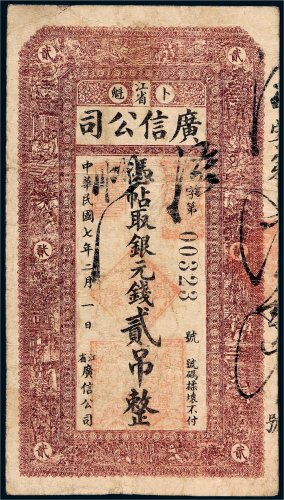 貳
貳
卜江省魁
廣信公司
字第00323號
號碼擦壞不付
憑帖取銀元錢貳吊整
中華民國七年月一日
江省廣信公司
貳
貳
貳
貳
號